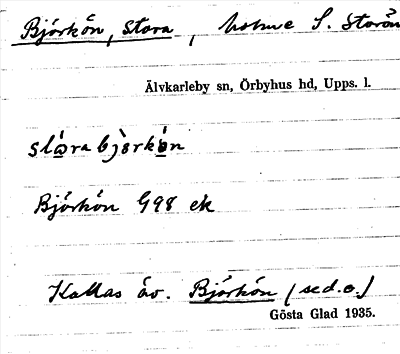 Björkön, Stora, holme S. Storön
Älvkarleby sn, Örbyhus hd, Upps. l.
stóra bjòrkö́n
Björkön G98 ek
Kallas äv. Björkön (se d.o.)
Gösta Glad 1935.